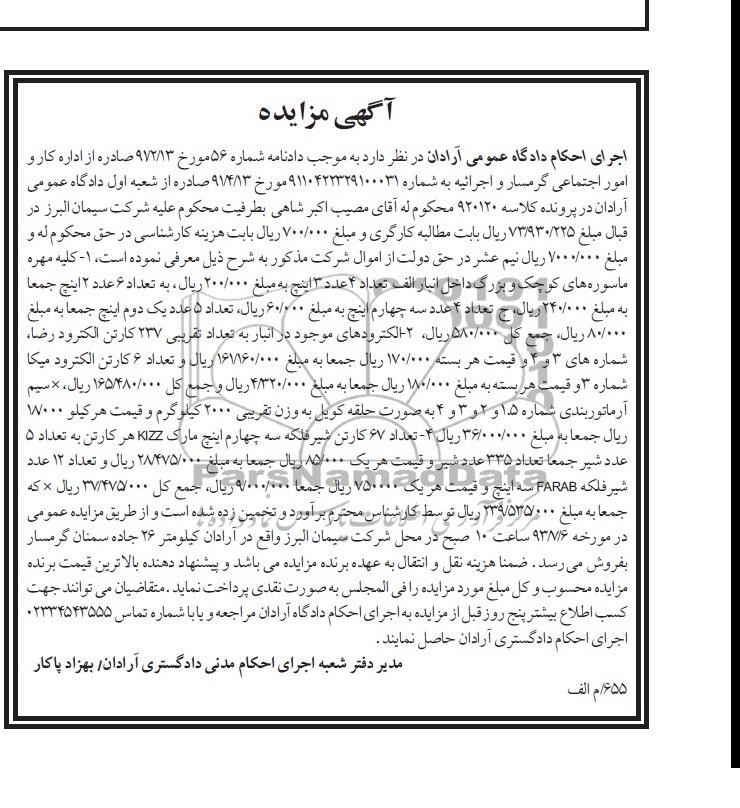 آگهی مزایده
اجرای احکام دادگاه عمومی آرادان در نظر دارد به موجب دادنامه شماره ۵۶ مورخ ۹۷۲/۱۳ صادره از اداره کار و
امور اجتماعی گرمسار و اجرائیه به شماره ۹۱۱۰۴۲۲۳۲۹۱۰۰۰۳۱ مورخ ۹۱/۴/۱۳ صادره از شعبه اول دادگاه عمومی
آرادان در پرونده کلاسه ۹۲۰۱۲۰ محکوم له آقای مصیب اکبر شاهی بطرفیت محکوم علیه شرکت سیمان البرز در
قبال مبلغ ۷۳/۹۳۰/۲۲۵ ریال بابت مطالبه کارگری و مبلغ ۷۰۰/۰۰۰ ریال بابت هزینه کارشناسی در حق محکوم له و
مبلغ ۷/۰۰۰/۰۰۰ ریال نیم عشر در حق دولت از اموال شرکت مذکور به شرح ذیل معرفی نموده است، ۱-کلیه مهره
ماسوره‌های کوچک و بزرگ داخل انبار الف تعداد ۴ عدد ۳ اینچ به مبلغ ۲۰۰/۰۰۰ ریال، به تعداد ۶ عدد ۲ اینچ جمعا
به مبلغ ۲۴۰/۰۰۰ ریال، ج تعداد ۴ عدد سه چهارم اینچ به مبلغ ۶۰/۰۰۰ ریال، تعداد ۵ عدد یک دوم اینچ جمعا به مبلغ
۸۰/۰۰۰ ریال، جمع کل ۵۸۰/۰۰۰ ریال، ۲-الکترودهای موجود در انبار به تعداد تقریبی ۲۳۷ کارتن الکترود رضا،
شماره های ۳ و ۴ و قیمت هر بسته ۱۷۰/۰۰۰ ریال جمعا به مبلغ ۱۶۱/۱۶۰/۰۰۰ ریال و تعداد ۶ کارتن الکترود میکا
شماره ۳ و قیمت هر بسته به مبلغ ۱۸۰/۰۰۰ ریال جمعا به مبلغ ۴/۳۲۰/۰۰۰ ریال و جمع کل ۱۶۵/۴۸۰/۰۰۰ ریال، ×سیم
آرماتوربندی شماره ۱.۵ و ۲ و ۳ و ۴ به صورت حلقه کویل به وزن تقریبی ۲۰۰۰ کیلوگرم و قیمت هرکیلو ۱۸/۰۰۰
ریال جمعا به مبلغ ۳۶/۰۰۰/۰۰۰ ریال ۴- تعداد ۶۷ کارتن شیر فلکه سه چهارم اینچ مارک KIZZ هر کارتن به تعداد ۵
عدد شیر جمعا تعداد ۳۳۵ عدد شیر و قیمت هر یک ۸۵/۰۰۰ ریال جمعا به مبلغ ۲۸/۴۷۵/۰۰۰ ریال و تعداد ۱۲ عدد
شیر فلکه FARAB سه اینچ و قیمت هر یک ۷۵۰۰۰۰ ریال جمعا ۹/۰۰۰/۰۰۰ ریال، جمع کل ۳۷/۴۷۵/۰۰۰ ریال × که
جمعا به مبلغ ۲۳۹/۵۳۵/۰۰۰ ریال توسط کارشناس محترم برآورد و تخمین زده شده است و از طریق مزایده عمومی
در مورخه ۹۳/۷/۶ ساعت ۱۰ صبح در محل شرکت سیمان البرز واقع در آرادان کیلومتر ۲۶ جاده سمنان گرمسار
بفروش می رسد . ضمنا هزینه نقل و انتقال به عهده برنده مزایده می باشد و پیشنهاد دهنده بالاترین قیمت برنده
مزایده محسوب و کل مبلغ مورد مزایده را فی المجلس به صورت نقدی پرداخت نماید . متقاضیان می توانند جهت
کسب اطلاع بیشتر پنج روز قبل از مزایده به اجرای احکام دادگاه آرادان مراجعه و یا با شماره تماس ۰۲۳۳۴۵۴۳۵۵۵
اجرای احکام دادگستری آرادان حاصل نمایند .
مدیر دفتر شعبه اجرای احکام مدنی دادگستری آرادان/ بهزاد پاکار
۶۵۵/م الف
ParsNamadData